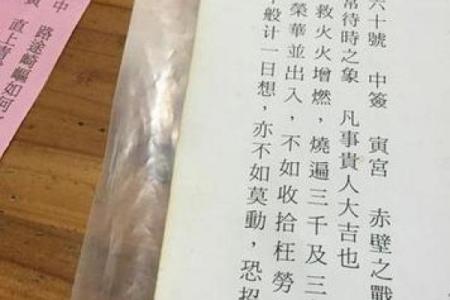 六十號　中簽　寅宮　赤壁之戰
常待時之象　凡事貴人大吉也
救火火增燃，燒遍三千及三
榮華並出入，不如收拾枉勞
般计一日想，亦不如莫動，恐招
中　路途崎嶇如何
直上青